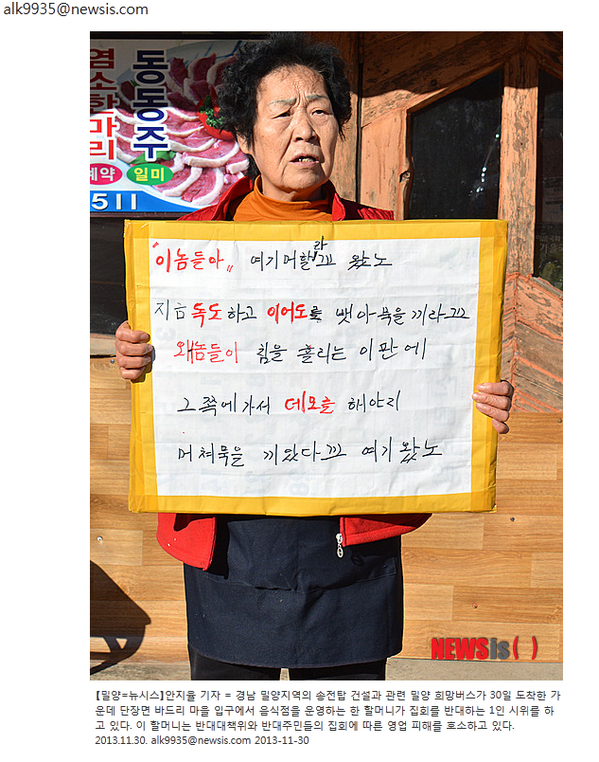 alk9935@newsis.com
염소한마리
동동주
예약
일미
511
"이놈들아" 여기머할라꼬 왔노
지금 독도하고 이어도를 뺏아묵을끼라꼬
왜놈들이 침을 흘리는 이판에
그쪽에가서 데모를 해야지
머쳐묵을 끼있다꼬 여기왔노
NEWSis( )
【밀양=뉴시스】안지율 기자 = 경남 밀양지역의 송전탑 건설과 관련 밀양 희망버스가 30일 도착한 가
운데 단장면 바드리 마을 입구에서 음식점을 운영하는 한 할머니가 집회를 반대하는 1인 시위를 하
고 있다. 이 할머니는 반대대책위와 반대주민들의 집회에 따른 영업 피해를 호소하고 있다.
2013.11.30. alk9935@newsis.com 2013-11-30